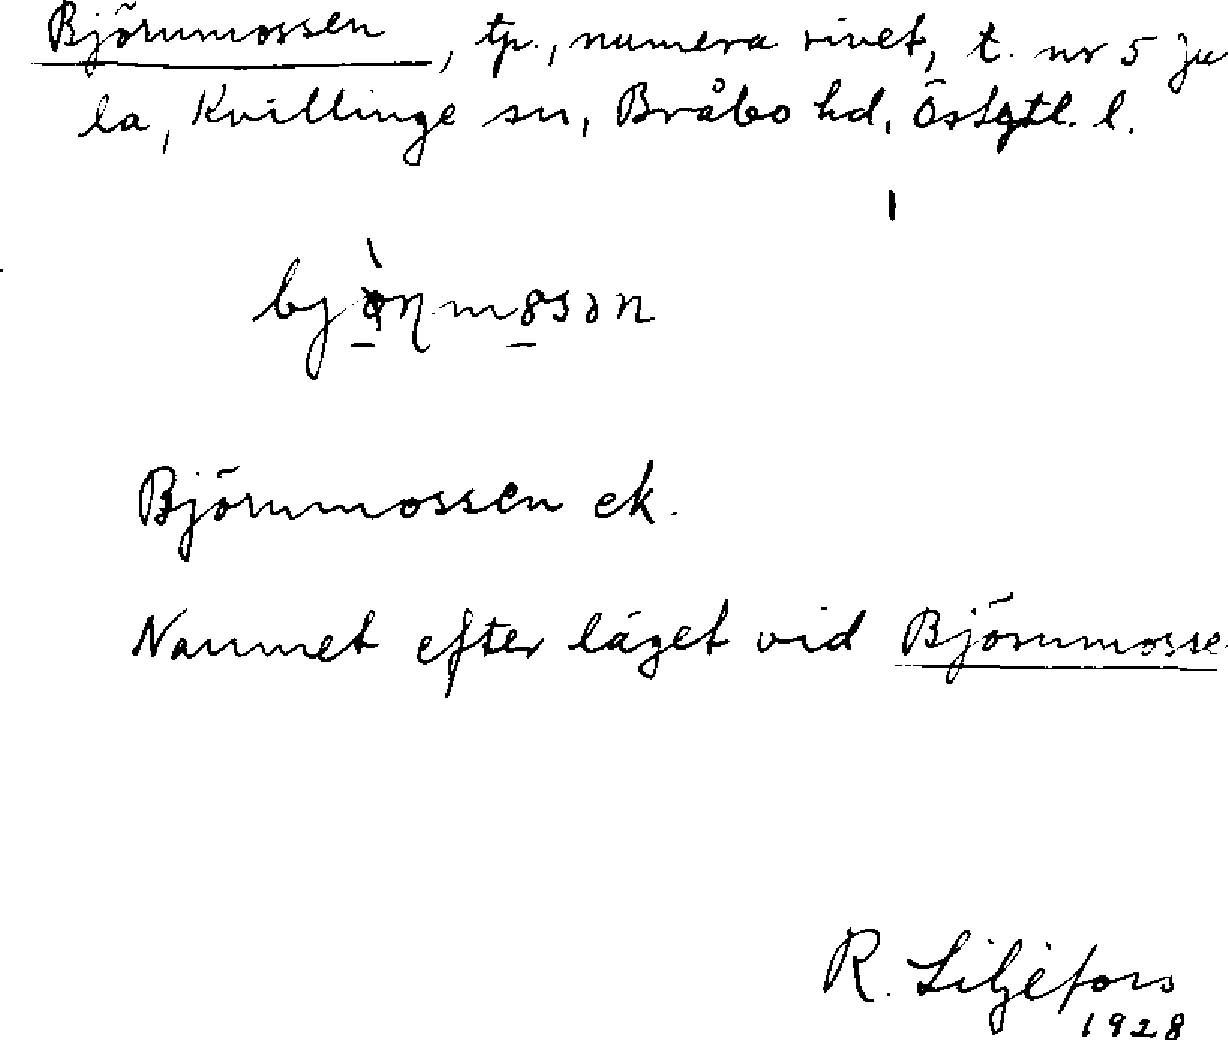 Björnmossen, tp., numera rivet, t. nr 5 Ju
la, Kvillinge sn, Bråbo hd, Östgtl. l.
Björnmossen ek.
Namnet efter läget vid Björnmosse
R. Liljefors
1928